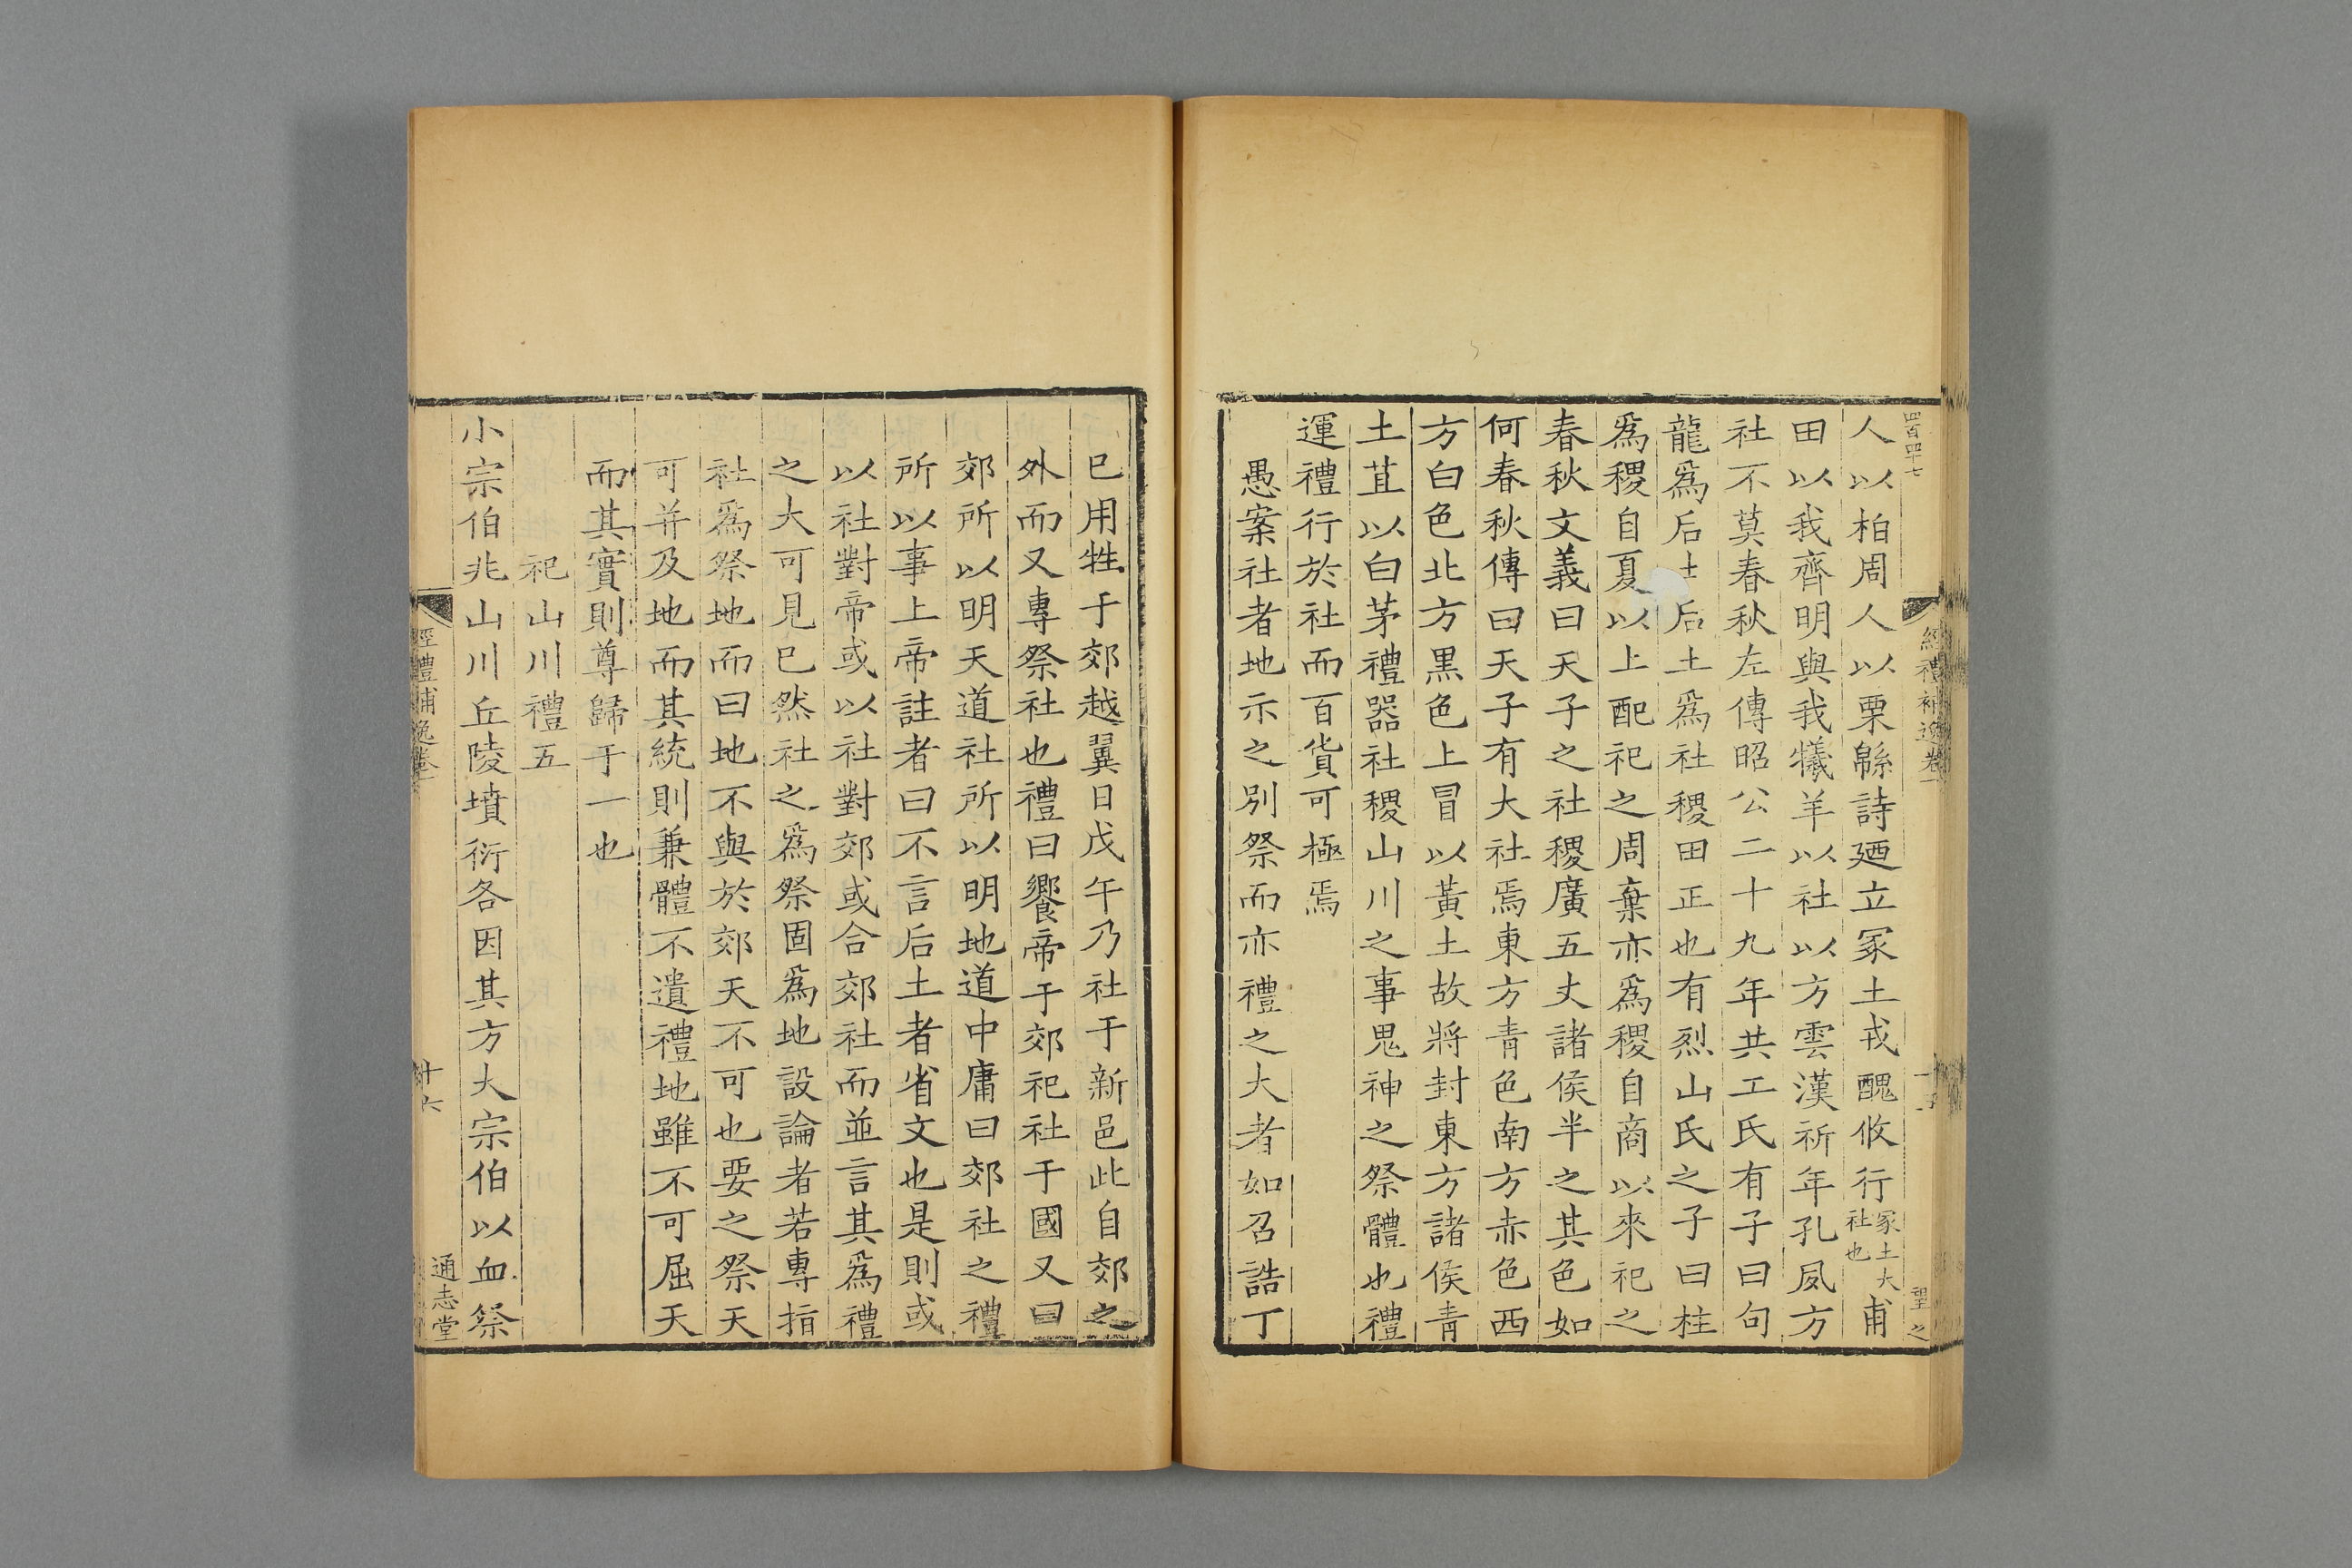 四百四十七
經禮補逸卷一
人以柏周人以栗緜詩廼立冢土戎醜攸行冢土大社也甫
田以我齊明與我犧羊以社以方雲漢祈年孔夙方
社不莫春秋左傳昭公二十九年共工氏有子曰句
龍爲后土后土爲社稷田正也有烈山氏之子曰柱
爲稷自夏以上配祀之周棄亦爲稷自商以來祀之
春秋文義曰天子之社稷廣五丈諸侯半之其色如
何春秋傳曰天子有大社焉東方青色南方赤色西
方白色北方黑色上冒以黃土故將封東方諸侯青
土苴以白茅禮器社稷山川之事鬼神之祭體也禮
運禮行於社而百貨可極焉
愚案社者地示之別祭而亦禮之大者如召誥丁
巳用牲于郊越翼日戊午乃社于新邑此自郊之
外而又專祭社也禮曰饗帝于郊祀社于國又曰
郊所以明天道社所以明地道中庸曰郊社之禮
所以事上帝註者曰不言后土者省文也是則或
以社對帝或以社對郊或合郊社而並言其爲禮
之大可見已然社之爲祭固爲地設論者若專指
社爲祭地而曰地不與於郊天不可也要之祭天
可并及地而其統則兼體不遺禮地雖不可屈天
而其實則尊歸于一也
祀山川禮五
小宗伯兆山川丘陵墳衍各因其方大宗伯以血祭
經禮補逸卷一
十六
通志堂